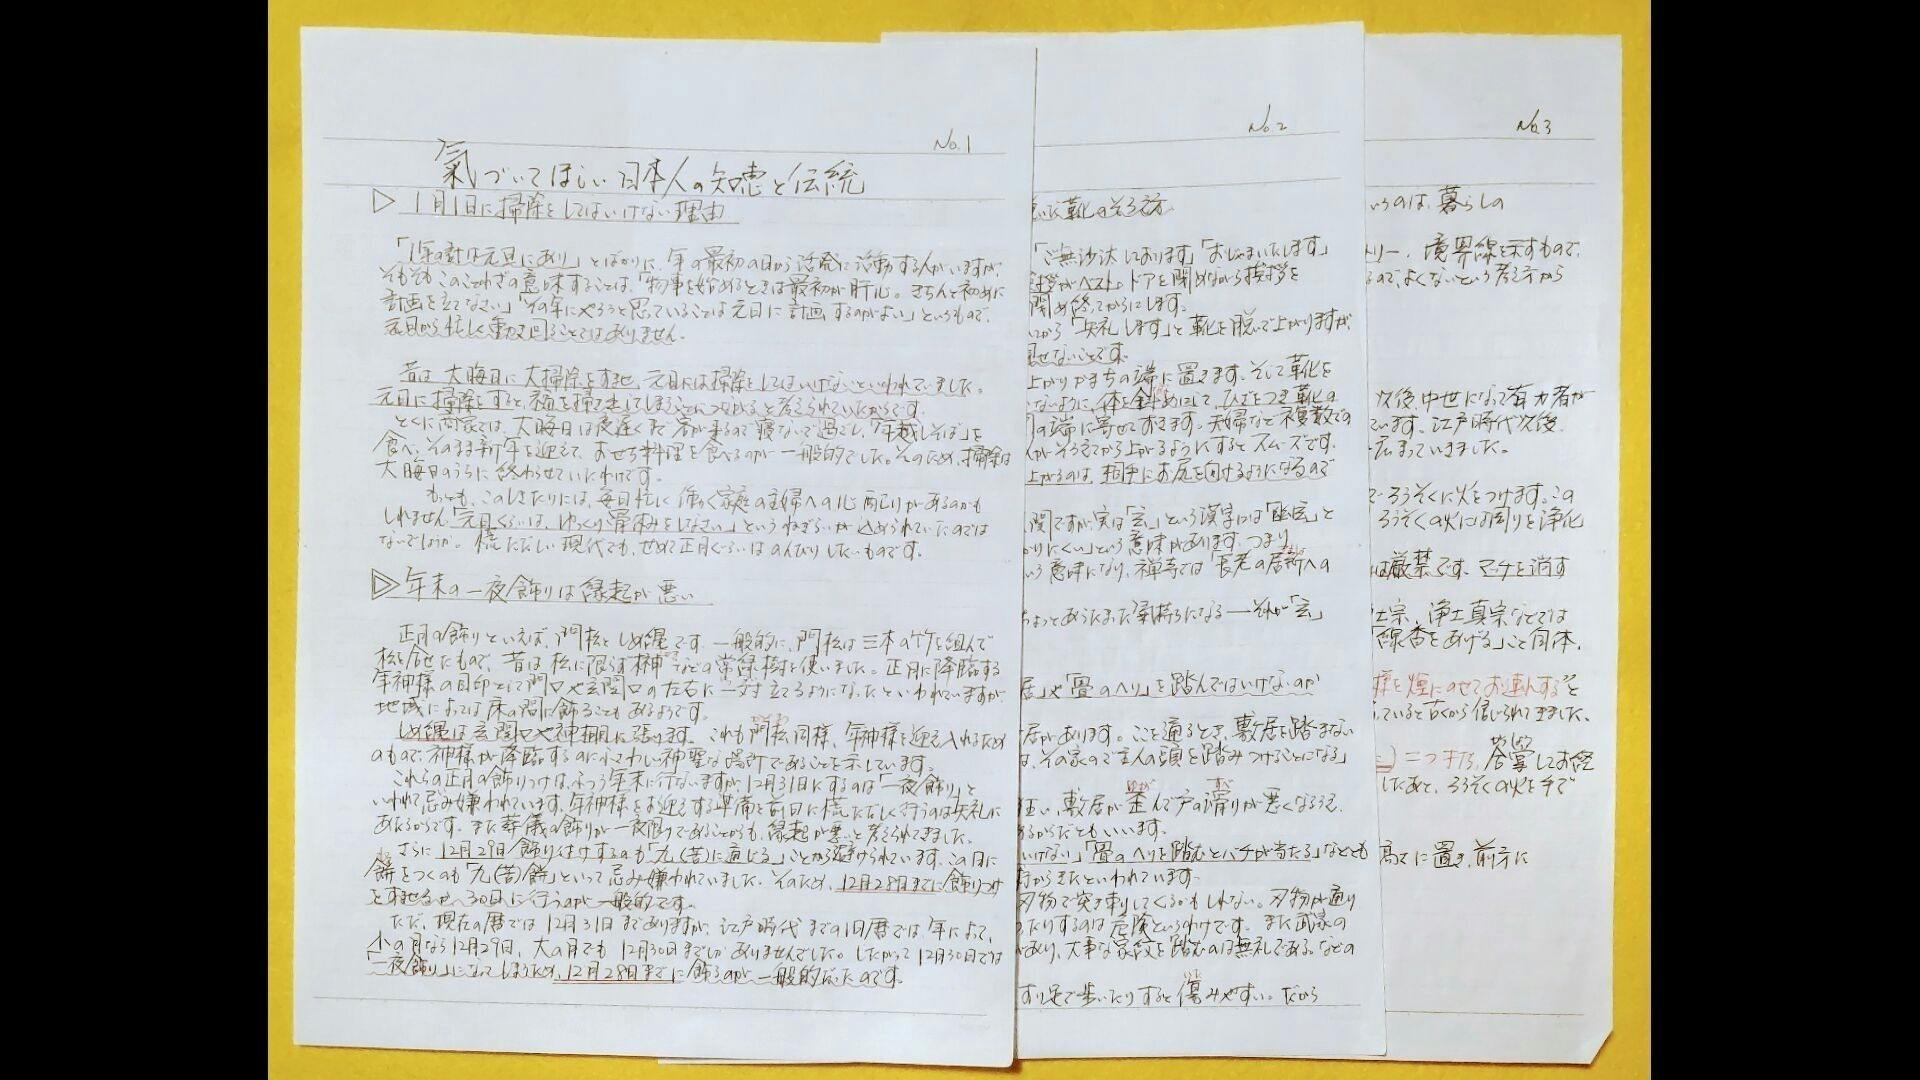 No.1
氣づいてほしい日本人の知恵と伝統
▷1月1日に掃除をしてはいけない理由
「1年の計は元旦にあり」とばかりに、年の最初の日から活発に活動する人がいますが、
そもそもこのことわざの意味することは、「物事を始めるときは最初が肝心。きちんと初めに
計画を立てなさい」「その年にやろうと思っていることは元日に計画するのがよい」というもので、
元日から忙しく動き回ることではありません。
昔は大晦日に大掃除をすませ、元日には掃除をしてはいけないといわれていました。
元日に掃除をすると、福を掃き出してしまうことにつながると考えられていたからです。
とくに商家では、大晦日は夜遅くまで客が来るので寝ないで過ごし、「年越しそば」を
食べ、そのまま新年を迎えて、おせち料理を食べるのが一般的でした。そのため、掃除は
大晦日のうちに終わらせていたわけです。
もっとも、このしきたりには、毎日忙しく働く家庭の主婦への心配りがあるのかも
しれません。「元日くらいは、ゆっくり骨休みをしなさい」というねぎらいが込められていたのでは
ないでしょうか。慌ただしい現代でも、せめて正月ぐらいはのんびりしたいものです。
▷年末の一夜飾りは縁起が悪い
正月の飾りといえば、門松としめ縄です。一般的に、門松は三本の竹を組んで
松を合せたもので、昔は松に限らず榊などの常緑樹を使いました。正月に降臨する
年神様の目印として門口や玄関口の左右に一対立てるようになったといわれていますが、
地域によっては床の間に飾ることもあるようです。
しめ縄は玄関口や神棚に張ります。これも門松同様、年神様を迎え入れるため
のもので、神様が降臨するのにふさわしい神聖な場所であることを示しています。
これらの正月の飾りつけは、ふつう年末に行ないますが、12月31日にするのは「一夜飾り」と
いわれて忌み嫌われています。年神様をお迎えする準備を前日に慌ただしく行うのは失礼に
あたるからです。また葬儀の飾りが一夜限りであることからも、縁起が悪いと考えられてきました。
さらに12月29日飾り付けするのも「九(苦)に通じる」ことから避けられています。この日に
餅をつくのも「九(苦)餅」といって忌み嫌われていました。そのため、12月28日までに飾りつけ
をすませるか、30日に行うのが一般的です。
ただ、現在の暦では12月31日までありますが、江戸時代までの旧暦では、年によって、
小の月なら12月29日、大の月でも12月30日までしかありませんでした。したがって12月30日では
「一夜飾り」になってしまうため、12月28日までに飾るのが、一般的だったのです。
No.2
靴のそろえ方
「ご無沙汰しております」「おじゃまいたします」
挨拶がベスト。ドアを閉めながら挨拶を
閉め終ってからにします。
から「失礼します」と靴を脱いで上がりますが、
見せないことです。
上がりかまちの端に置きます。そして靴を
ないように、体を斜めにして、ひざをつき靴の
の端に寄せておきます。夫婦など複数での
がそろえてから上がるようにするとスムーズです。
上がるのは、相手にお尻を向けるようになるので
関ですが、実は「玄」という漢字には「幽玄」と
かりにくい」という意味があります。つまり
いう意味になり、禅寺では「長老の居所への
ちょっとあらたまった気持ちになる――それが「玄」
居」や「畳のヘリ」を踏んではいけないのか
居があります。ここを通るとき、敷居を踏まない
は、その家のご主人の頭を踏みつけることになる」
狂い、敷居が歪んで戸の滑りが悪くなるうえ、
あるからだともいいます。
いけない」「畳のヘリを踏むとバチが当たる」などとも
からきたといわれています。
刃物で突き刺してくるかもしれない。刃物が通り
たりするのは危険というわけです。また武家の
があり、大事な家紋を踏むのは無礼である。などの
すり足で歩いたりすると傷みやすい。だから
No.3
いうのは、暮らしの
トリー、境界線を示すもので、
るので、よくないという考え方から
次後、中世になって有力者が
ています。江戸時代次後、
広まっていきました。
で ろうそくに火をつけます。この
ろうそくの火には周りを浄化
は厳禁です。マッチを消す
土宗、浄土真宗などでは
「線香をあげる」こと自体、
様を煙にのせてお運んする”と
っていると古くから信じられてきました。
につきたら、合掌してお経
したあと、ろうそくの火を手で
高さに置き、前方に